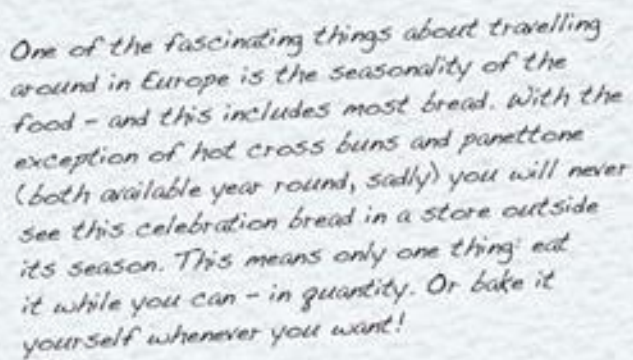 One of the fascinating things about travelling
around in Europe is the seasonality of the
food - and this includes most bread. With the
exception of hot cross buns and panettone
(both available year round, sadly) you will never
see this celebration bread in a store outside
its season. This means only one thing: eat
it while you can - in quantity. Or bake it
yourself whenever you want!